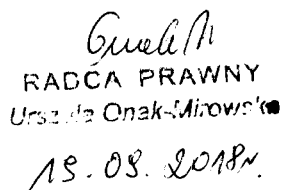 RADCA PRAWNY
Urszula Onak-Mirowska
19.09.2018r.